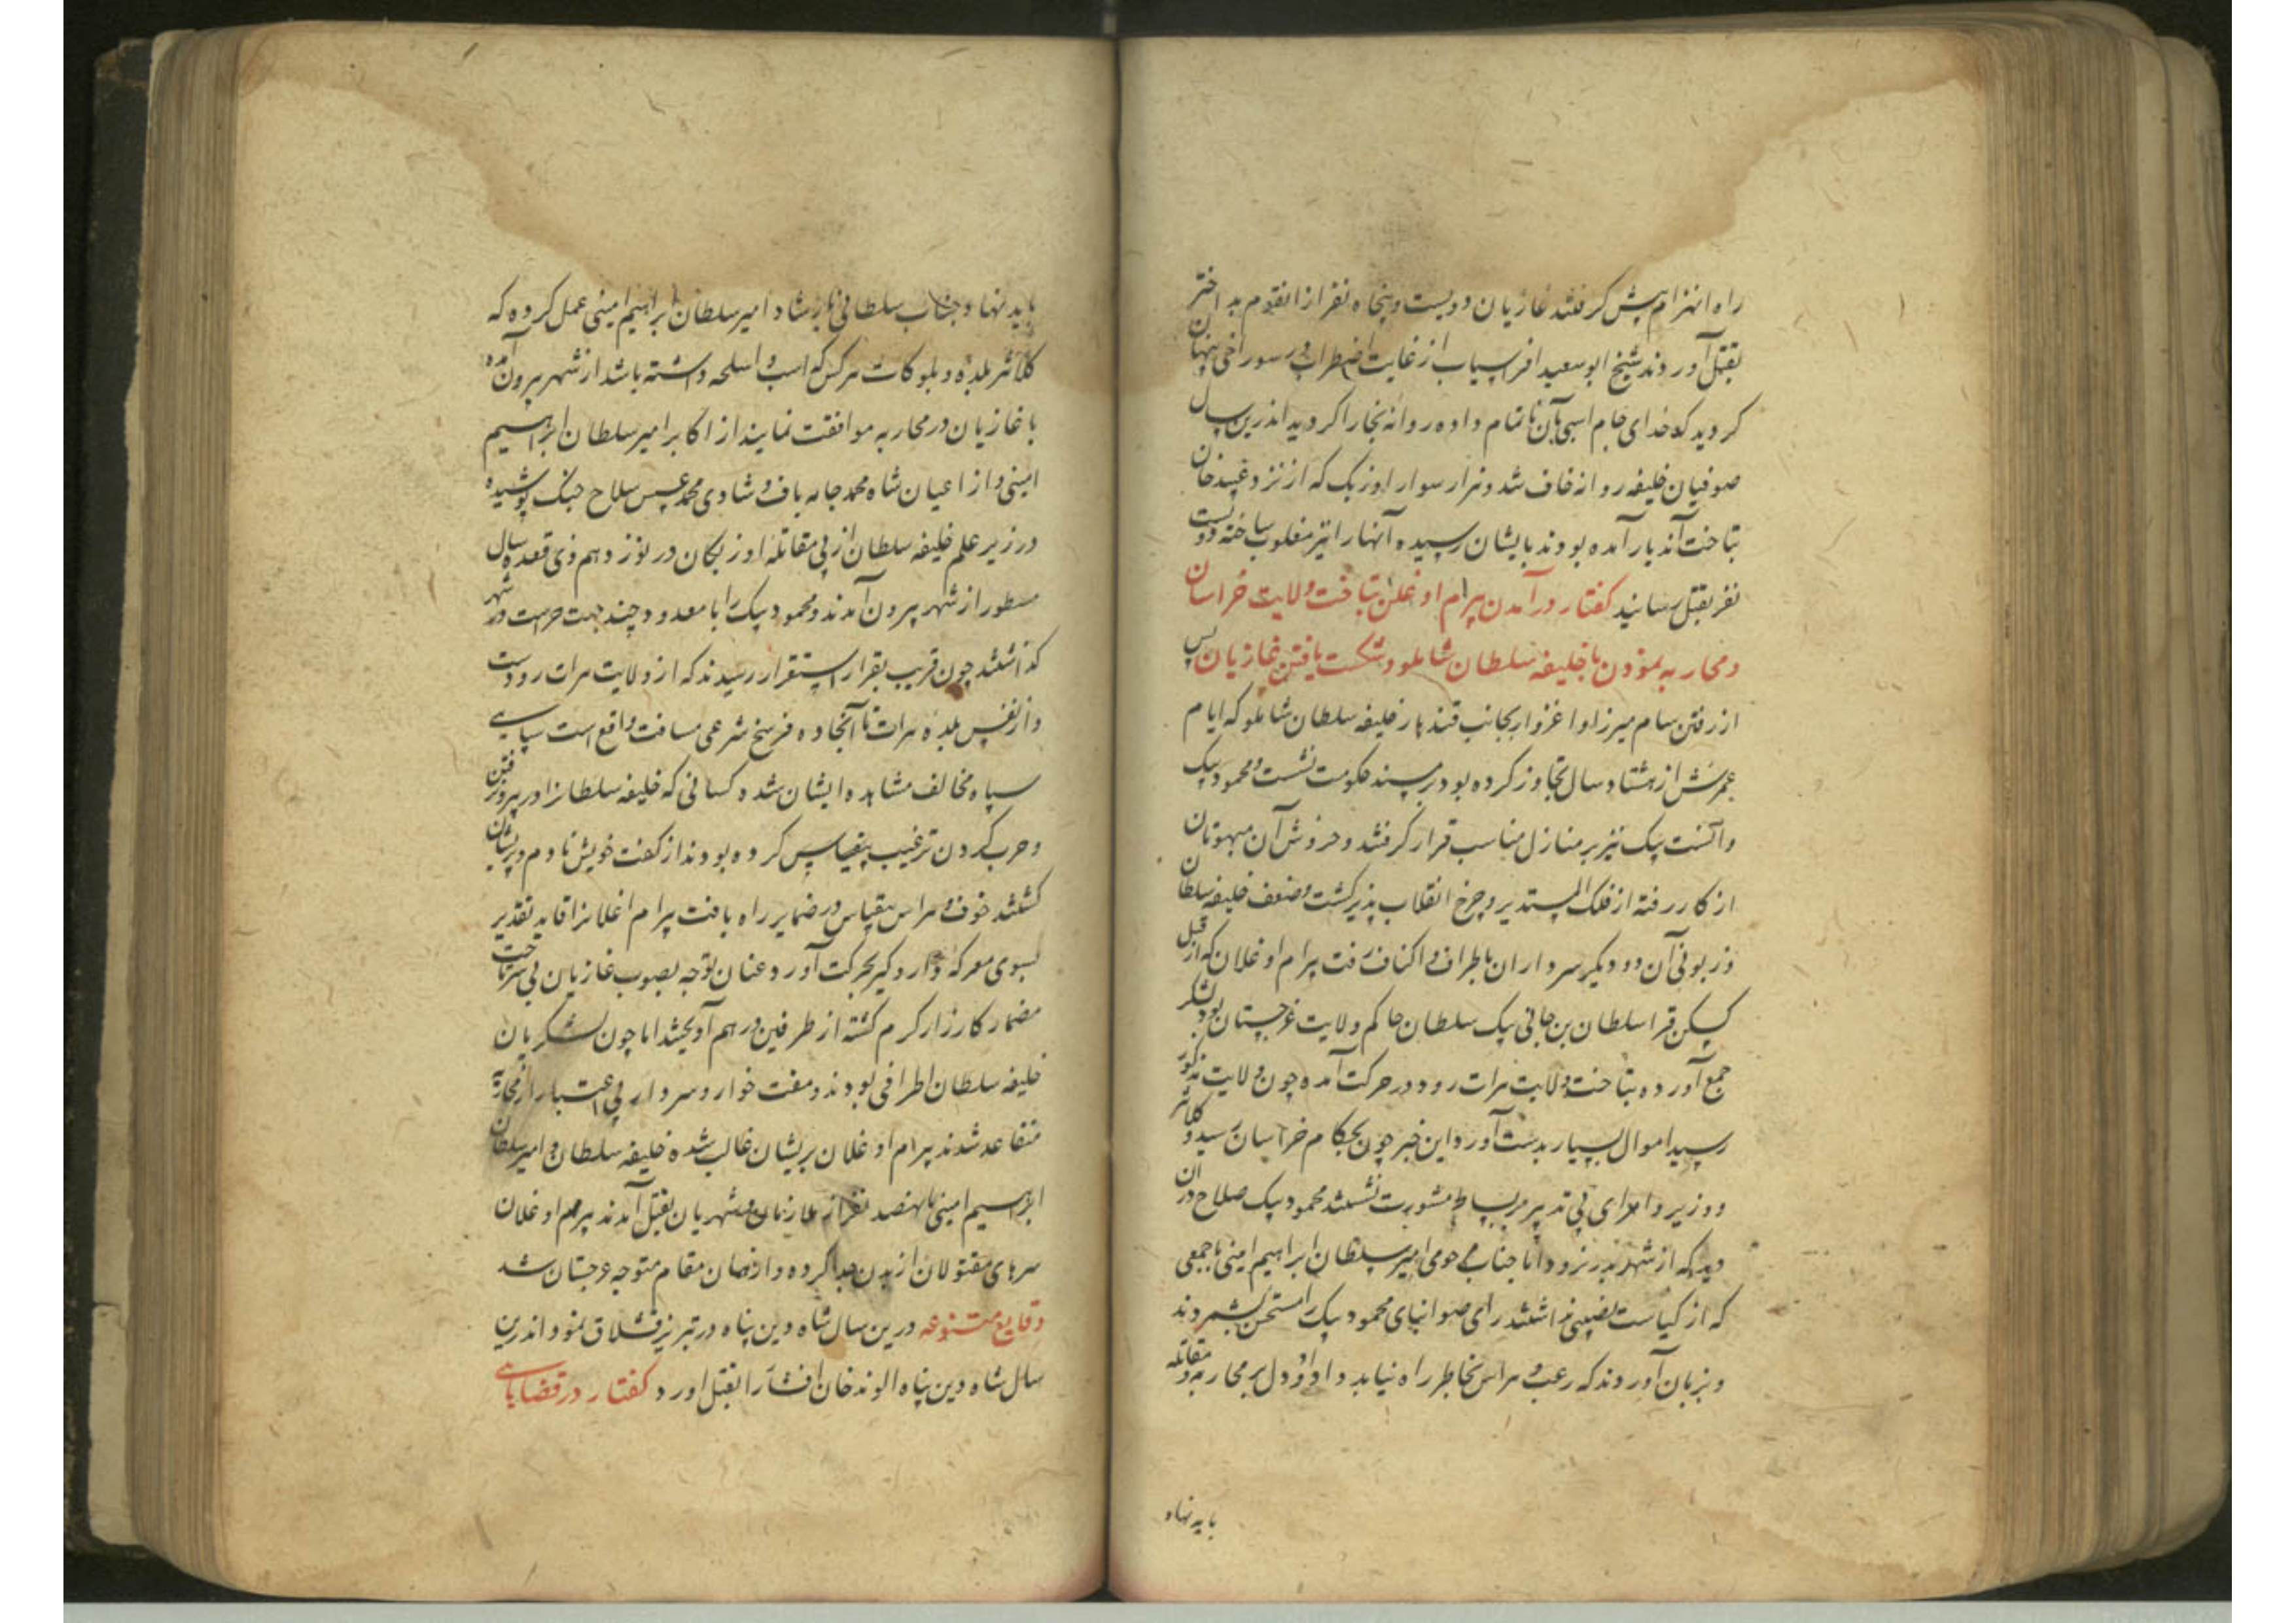 راه انهزام پیش کرفتند غازیان دویست و پنجاه نفر از انقوم بد اختر
بقتل آوردند شیخ ابوسعید افراسیاب از غایت اضطراب در سوراخی پنهان
کردید که خدای جام اسبی بآن ناتمام داده روانه بخارا کردید اندرین سال
صوفیان خلیفه روانه خاف شد و هزار سوار اوزبک که از نزد عبید خان
بتاخت آندیار آمده بودند بایشان رسیده آنها را نیز مغلوب ساخته دویست
نفر بقتل رسانید کفتار در آمدن بیرام اوغلن بتاخت ولایت خراسان
و محاربه نمودن با خلیفه سلطان شاملو و شکست یافتن غازیان پس
از رفتن سام میرزا و اغزوار بجانب قندهار خلیفه سلطان شاملو که ایام
عمرش از هشتاد سال تجاوز کرده بود در مسند حکومت نشست و محمود بیک
و آتسنت بیک نیز بر منازل مناسب قرار کرفتند و خروش آن مبهوتان
از کار رفته از فلک المستدیر و چرخ انقلاب پذیر کشت و ضعف خلیفه سلطان
و زبونی آن دو دیکر سرداران باطراف و اکناف رفت بیرام اوغلان که از قبل
کیسکن قرا سلطان بن جانی بیک سلطان حاکم ولایت غرجستان بود لشکر
جمع آورده بتاخت ولایت هرات رود در حرکت آمده چون ولایت مذکور
رسید اموال بسیار بدست آورد و این خبر چون بحکام خراسان رسید و کلانتر
و وزیر و امرای بی تدبیر بر بساط مشورت نشستند محمود بیک صلاح در آن
دید که از شهر بدر نرود اما جناب مرحومی امیر سلطان ابراهیم امینی با جمعی
که از کیاست نصیبی نداشتند رای صوابنمای محمود بیک را مستحسن نشمردند
و بزبان آوردند که رعب و هراس بخاطر راه نیابد داد و دل بر محاربه و مقاتله
باید نهاد
باید نهاد و جناب سلطانی بارشاد امیر سلطان ابراهیم امینی عمل کرده که
کلانتر بلده و بلوکات هر کس که اسب و اسلحه داشته باشد از شهر بیرون آمده
با غازیان در محاربه موافقت نمایند از اکابر امیر سلطان ابراهیم
امینی و از اعیان شاه محمد جامه باف و شادی محمد عسس سلاح جنک پوشیده
در زیر علم خلیفه سلطان از پی مقاتله اوزبکان در نوزدهم ذی قعده سال
مسطور از شهر بیرون آمدند و محمود بیک را با معدود چند جهت حراست در شهر
کذاشتند چون قریب بقرار استقرار رسیدند که از ولایت هرات رودست
و از نفس بلده هرات تا آنجا ده فرسخ شرعی مسافت واقع است سیاهی
سپاه مخالف مشاهده ایشان شد کسانی که خلیفه سلطان را در بیرون رفتن
و حرب کردن ترغیب بیقیاس کرده بودند از کفت خویش نادم و پریشان
کشتند خوف و هراس بیقیاس در ضمایر راه یافت بیرام اغلان را قاید تقدیر
بسوی معرکه دار و کیر بحرکت آورد و عنان توجه بصوب غازیان بی سر تاخت
مضمار کارزار کرم کشته از طرفین در هم آویختند اما چون لشکریان
خلیفه سلطان اطرافی بودند و مفت خوار و سردار بی اعتبار از محاربه
متقاعد شدند بیرام اوغلان بریشان غالب شده خلیفه سلطان و امیر سلطان
ابراهیم امینی با نهصد نفر از ملازمان و شهریان بقتل آمدند بیرم اوغلان
سرهای مقتولان از بدن جدا کرده و از همان مقام متوجه غرجستان شد
وقایع متنوعه درین سال شاه دین پناه در تبریز قشلاق نمود اندرین
سال شاه دین پناه الوند خان افشار را بقتل اورد کفتار در قضایای